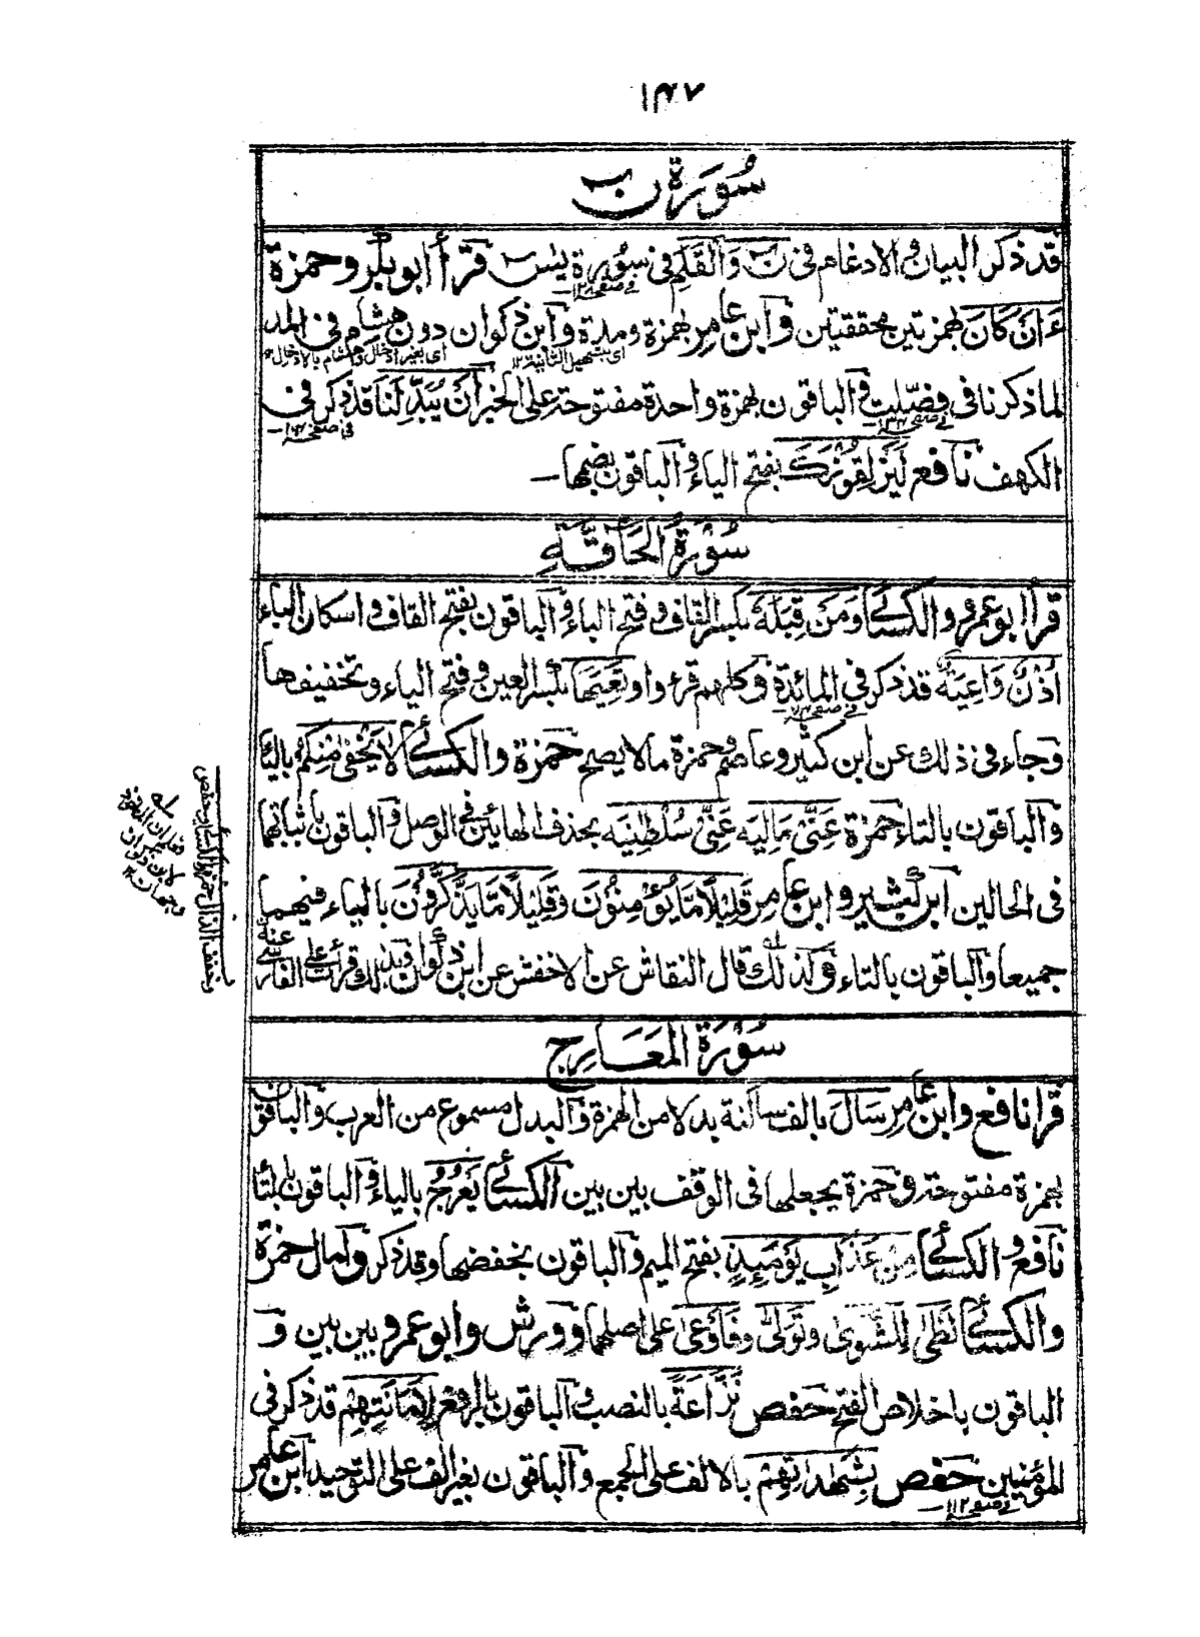 ١٤٧
سُوْرَةُ نٓ
قد ذكر البيان و الادغام فی نٓ وَالْقَلَمِ فی سُوْرة يٰسٓ قرأ ابو بكر و حمزة
فی صفحه ١٢٨
ءَاَنْ كَانَ بهمزتين محققتين و ابن عامر بهمزة ومدة و ابن ذكوان دون هشام فی المد
ای بتسهيل الثانية ١٢ ای بغير ادخال وهشام بالادخال
لما ذكرنا فی فصّلت و الباقون بهمزة واحدة مفتوحة على الخبر اَنْ يُّبَدِّلَنَا قد ذكر فی
فی صفحه فی صفحه
الكهف نافع لَيَزْلِقُوْنَكَ بفتح الياء و الباقون بضمها ـ
سُوْرَةُ الْحَاقَّةِ
قرأ ابو عمرو و الكسائی وَمَنْ قِبَلَهٗ بكسر القاف و فتح الباء و الباقون بفتح القاف و اسكان الباء
اُذُنٌ وَّاعِيَةٌ قد ذكر فی المائدة و كلهم قرءوا وَتَعِيَهَا بكسر العين و فتح الياء و تخفيفها
فی صفحه
و جاء فی ذلك عن ابن كثير و عاصم و حمزة ما لا يصح حمزة و الكسائی لَا يَخْفٰى مِنْكُمْ بالياء
و الباقون بالتاء حمزة عَنِّیْ مَالِيَهْ عَنِّیْ سُلْطٰنِيَهْ بحذف الهائين فی الوصل و الباقون باثباتهما
فی الحالين ابن كثير و ابن عامر قَلِيْلًا مَّا يُؤْمِنُوْنَ وَ قَلِيْلًا مَّا يَذَّكَّرُوْنَ بالياء فيهما
جميعا و الباقون بالتاء و كذلك قال النقاش عن الاخفش عن ابن ذكوان و بذلك قرأت على الفارسی عنه
بتخفيف الذال حمزة والكسائی وحفص
لابن ذكوان
وجهان ١٢
سُوْرَةُ الْمَعَارِجِ
قرأ نافع و ابن عامر سَالَ بالف ساكنة بدلا من الهمزة و البدل مسموع من العرب و الباقون
بهمزة مفتوحة و حمزة يجعلها فی الوقف بين بين الكسائی يَعْرُجُ بالياء و الباقون بالتاء
نافع و الكسائی مِنْ عَذَابِ يَوْمَئِذٍ بفتح الميم و الباقون بخفضها و قد ذكر و امال حمزة
و الكسائی لَظٰى لِلشَّوٰى وَتَوَلّٰى وَفَاَوْعٰى على اصلهما و ورش و ابو عمرو بين بين و
الباقون باخلاص الفتح حفص نَزَّاعَةً بالنصب و الباقون بالرفع لِاَمَانَتِهِمْ قد ذكر فی
المؤمنين حفص بِشَهٰدٰتِهِمْ بالالف على الجمع و الباقون بغير الف على التوحيد ابن عامر
فی صفحه ١١٢